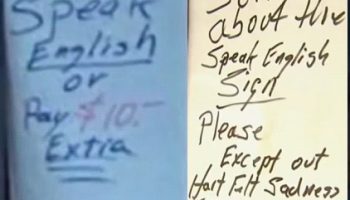 Speak
English
or
Pay $10.-
Extra
about the
Speak English
Sign
Please
Except out
Hart Felt Sadness